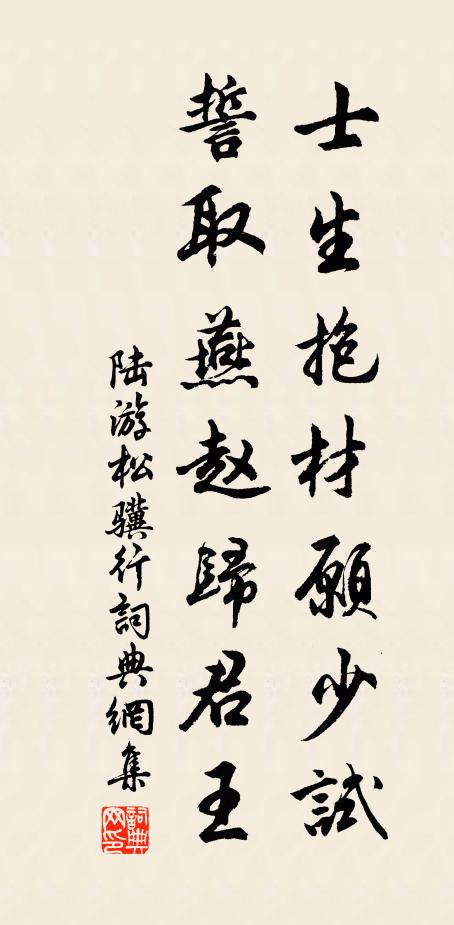 士生抱材願少試
誓取燕赵歸君王
陆游松骥行詞典網集
詞典网印